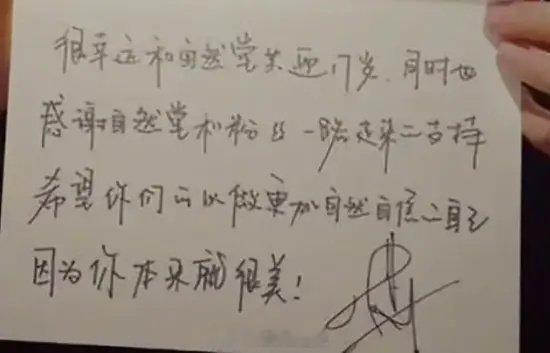 很幸运和自然堂共迎17岁.同时也
感谢自然堂和粉丝一路走来的支持
希望你们可以做更加自然自信的自己
因为你本来就很美!